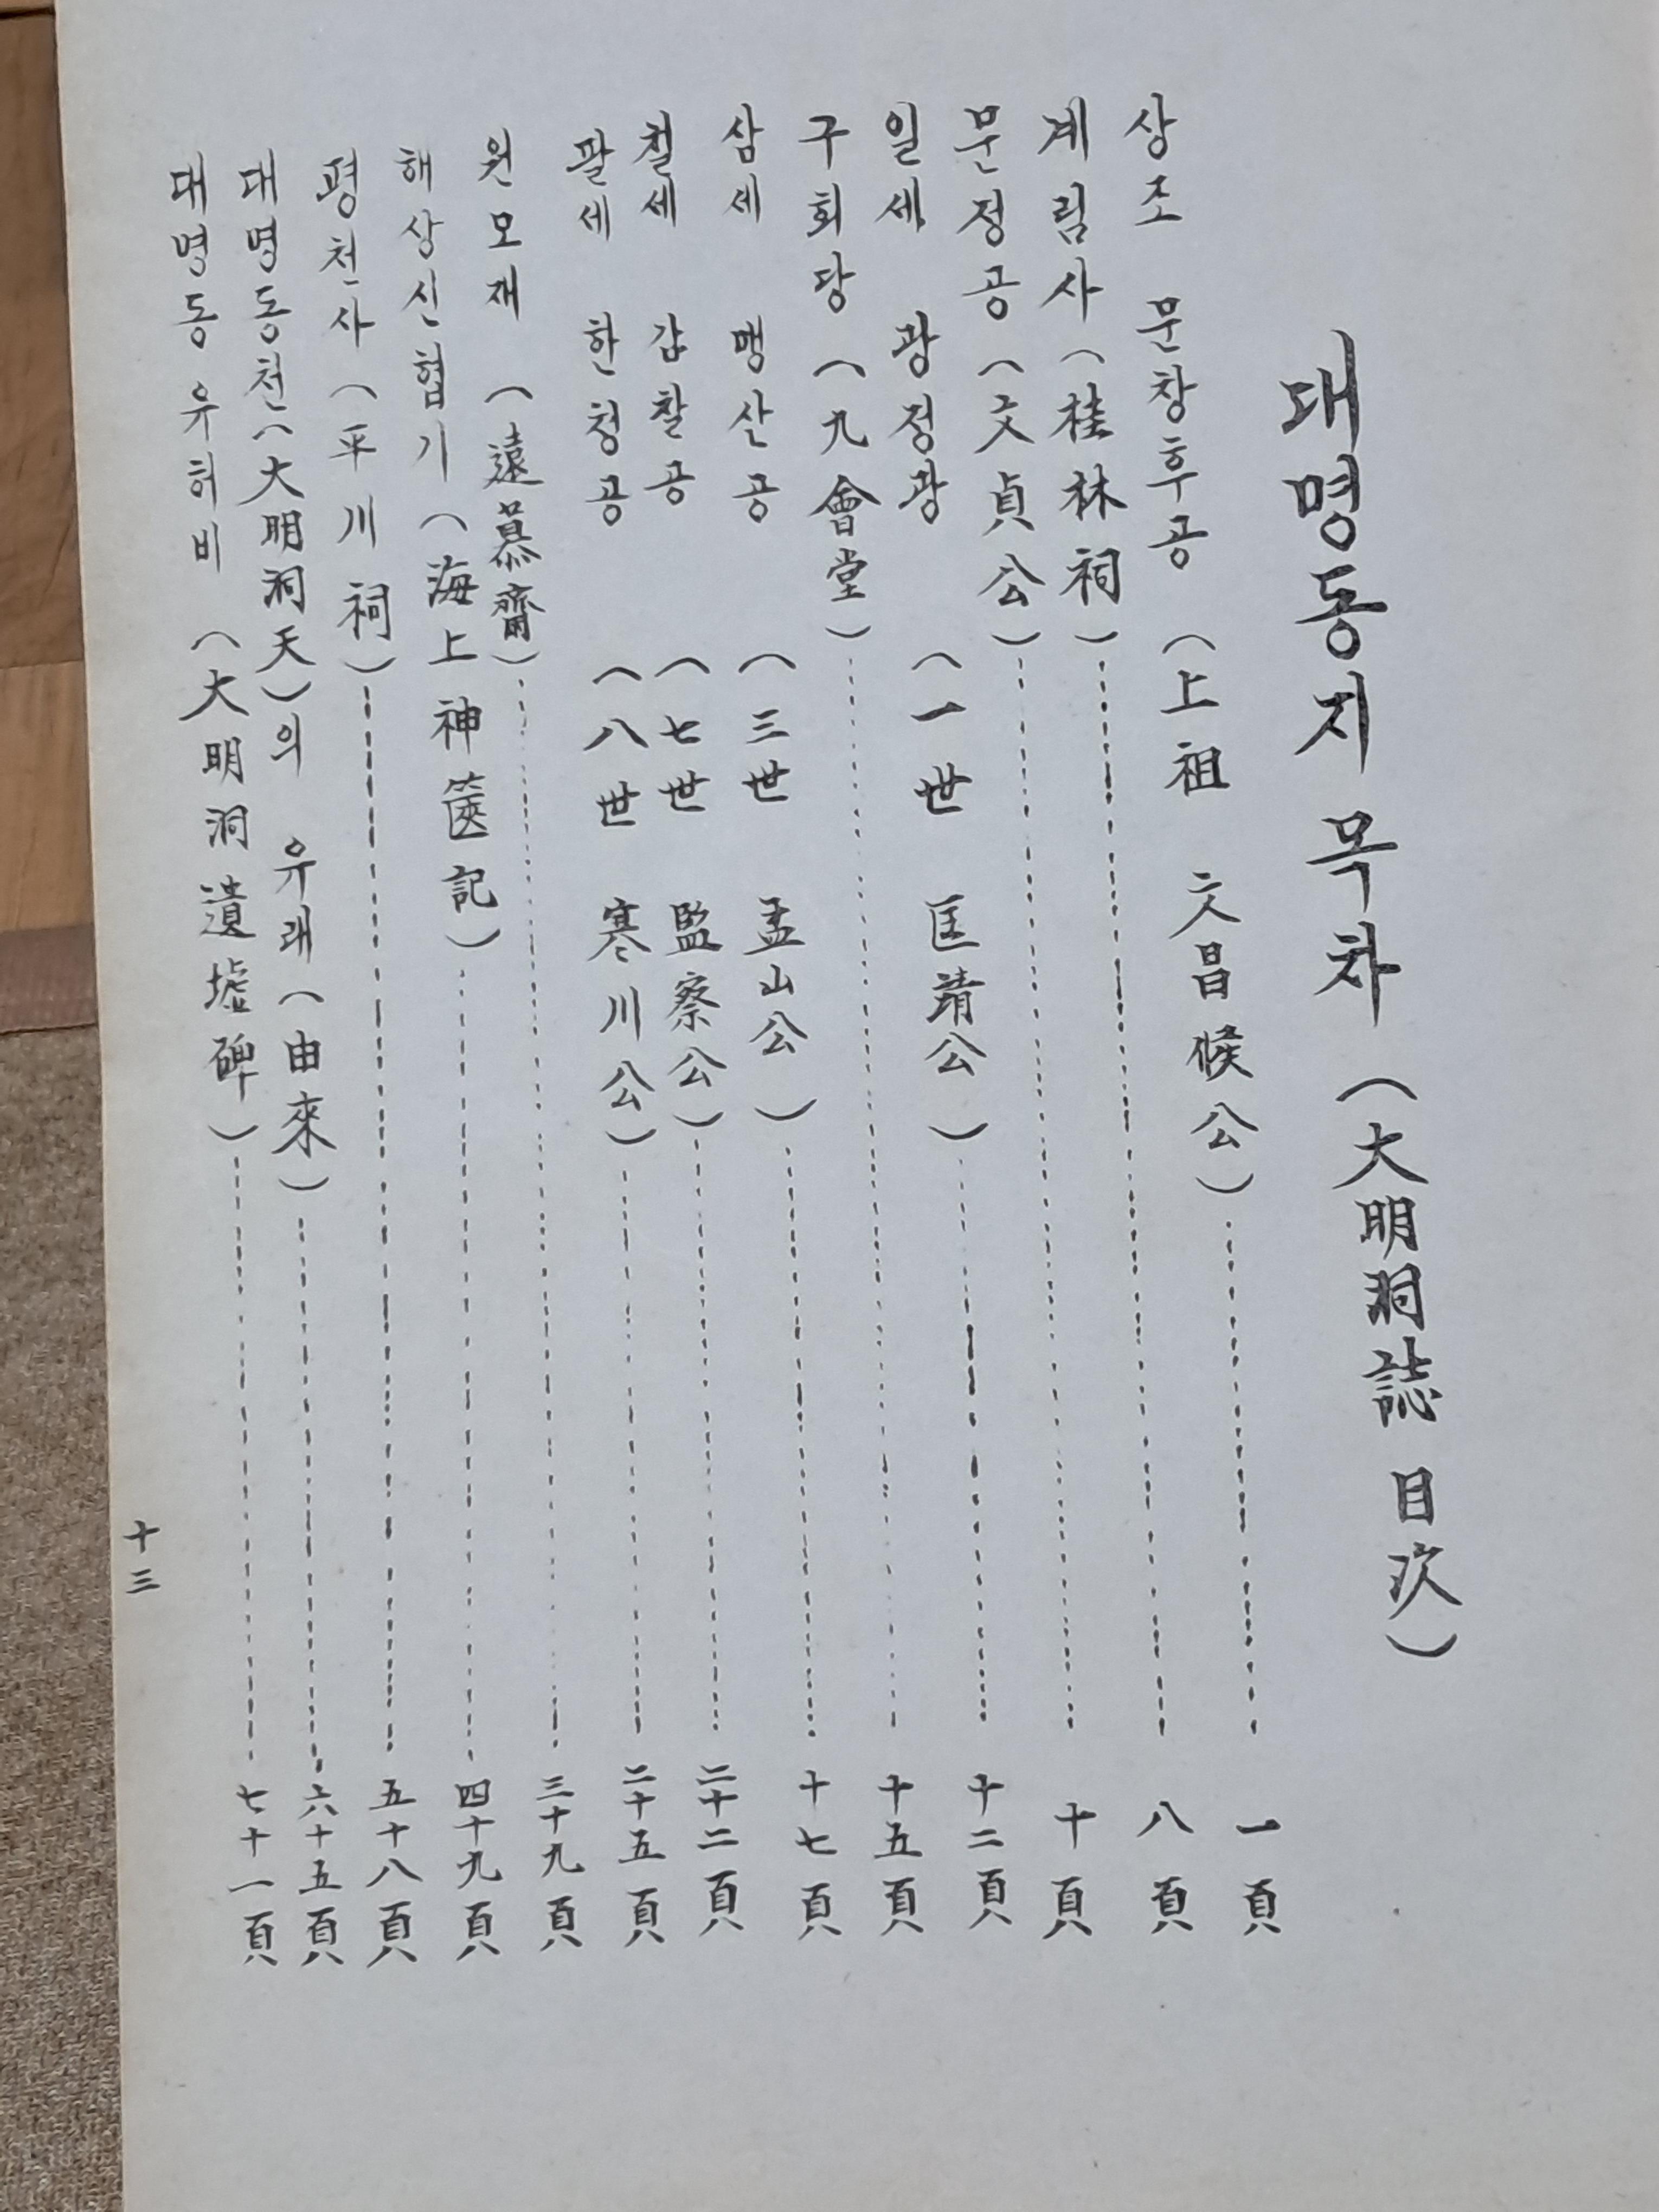 대명동지 목차 (大明洞誌 目次)
상조 문창후공 (上祖 文昌候公) 一頁
계림사 (桂林祠) 八頁
문정공 (文貞公) 十頁
일세 광정광 (一世 匡靖公) 十二頁
구회당 (九會堂) 十五頁
삼세 맹산공 (三世 孟山公) 十七頁
칠세 감찰공 (七世 監察公) 二十二頁
팔세 한청공 (八世 寒川公) 二十五頁
원모재 (遠慕齋) 三十九頁
해상신협기 (海上神篋記) 四十九頁
평천사 (平川祠) 五十八頁
대명동천 (大明洞天)의 유래 (由來) 六十五頁
대명동 유허비 (大明洞遺墟碑) 七十一頁
十三